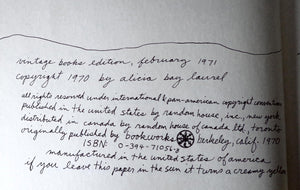 vintage books edition, february 1971
copyright 1970 by alicia bay laurel
all rights reserved under international & pan-american copyright conventions
published in the united states by random house, inc., new york
distributed in canada by random house of canada ltd., toronto
originally published by bookworks berkeley, calif. 1970
ISBN: 0-394-71056-8
manufactured in the united states of america
if you leave this paper in the sun it turns a creamy yellow